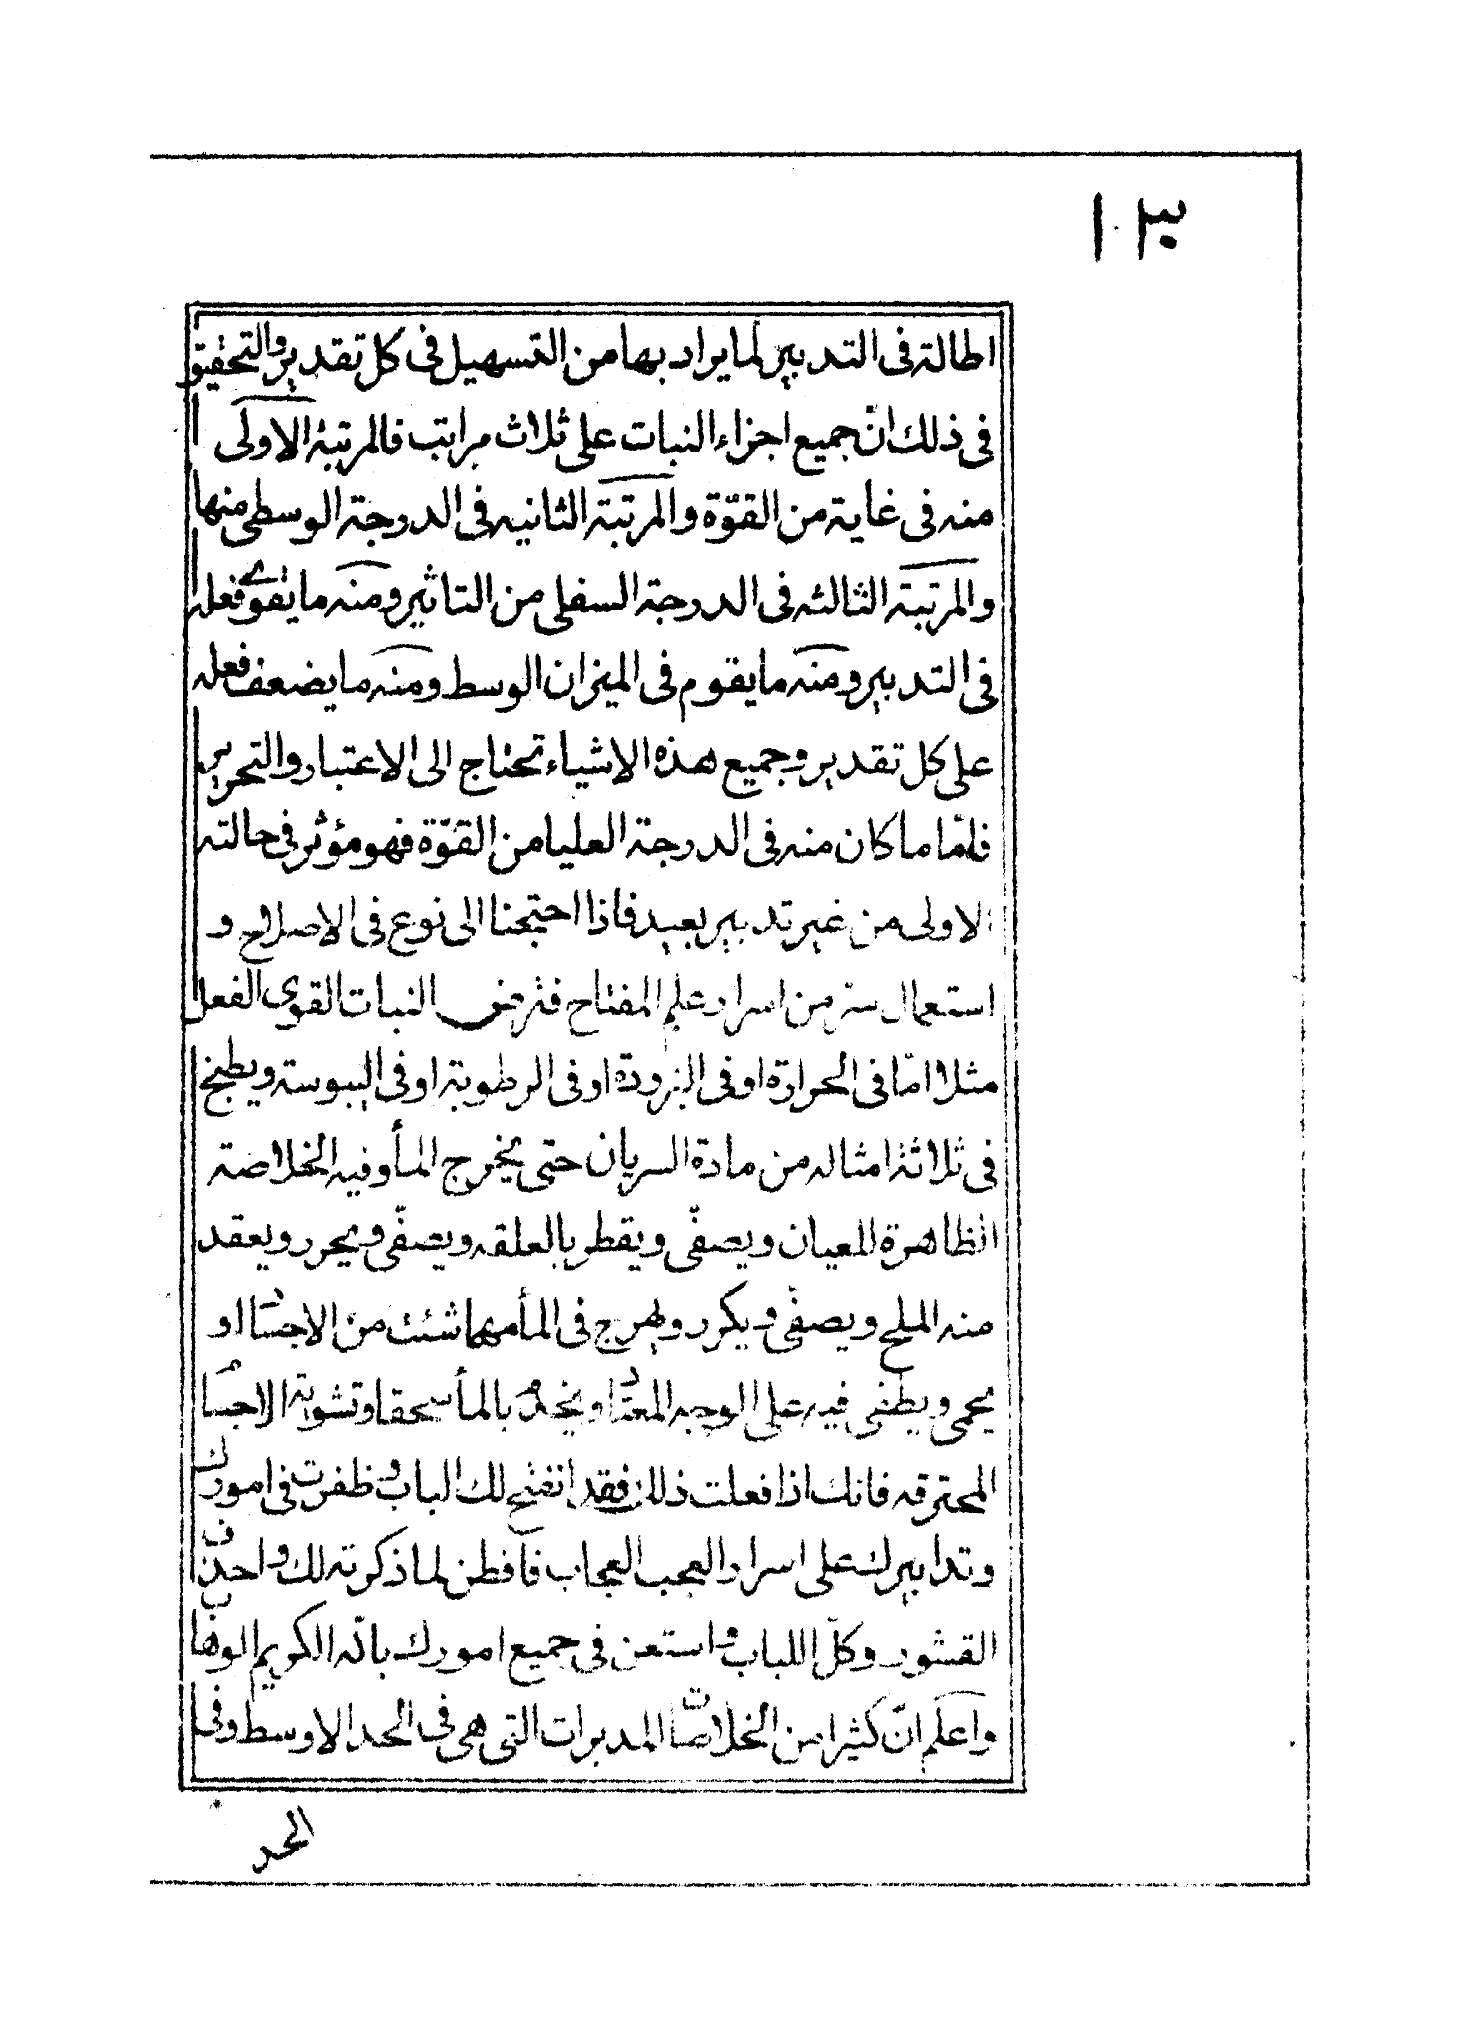 ١٠٣
اطالة فى التدبير لما يراد بها من التسهيل فى كل تقدير والتحقيق
فى ذلك انّ جميع اجزاء النبات على ثلاث مراتب فالمرتبة الاولى
منه فى غاية من القوّة والمرتبة الثانيه فى الدرجة الوسطى منها
والمرتبة الثالثه فى الدرجة السفلى من التاثير ومنه ما يقوى فعله
فى التدبير ومنه ما يقوم فى الميزان الوسط ومنه ما يضعف فعله
على كل تقدير وجميع هذه الاشياء تحتاج الى الاعتبار والتحرير
فلمّا ما كان منه فى الدرجة العليا من القوّة فهو مؤثر فى حالته
الاولى من غير تدبير بعيد فاذا احتجنا الى نوع فى الاصلاح و
استعمال سر من اسرار علم المفتاح النبات القوى الفعل
مثلا امّا فى الحرارة او فى البرودة او فى الرطوبة او فى اليبوسة ويطبخ
فى ثلاثة امثاله من مادة السريان حتى يخرج المأ وفيه الخلاصة
الظاهرة للعيان ويصفّى ويقطر بالعلقه ويصفّى ويحرر ويعقد
منه الملح ويصفّى ويكرر ويهرج فى المأ مهما شئت من الاجساد او
يحمى ويطفى فيه على الوجه المعتاد او يخدم بالمأ سحقا وتشوية الاجساد
المحترقه فانك اذا فعلت ذلك فقد انفتح لك الباب وظفرت فى امورك
وتدابيرك على اسرار العجب العجاب فافطن لما ذكرته لك واحذف
القشور وكل اللباب واستعن فى جميع امورك بانّه الكريم الوهاب
واعلم انّ كثيرا من الخلاصات المدبرات التى هى فى الحد الاوسط وفى
الحد